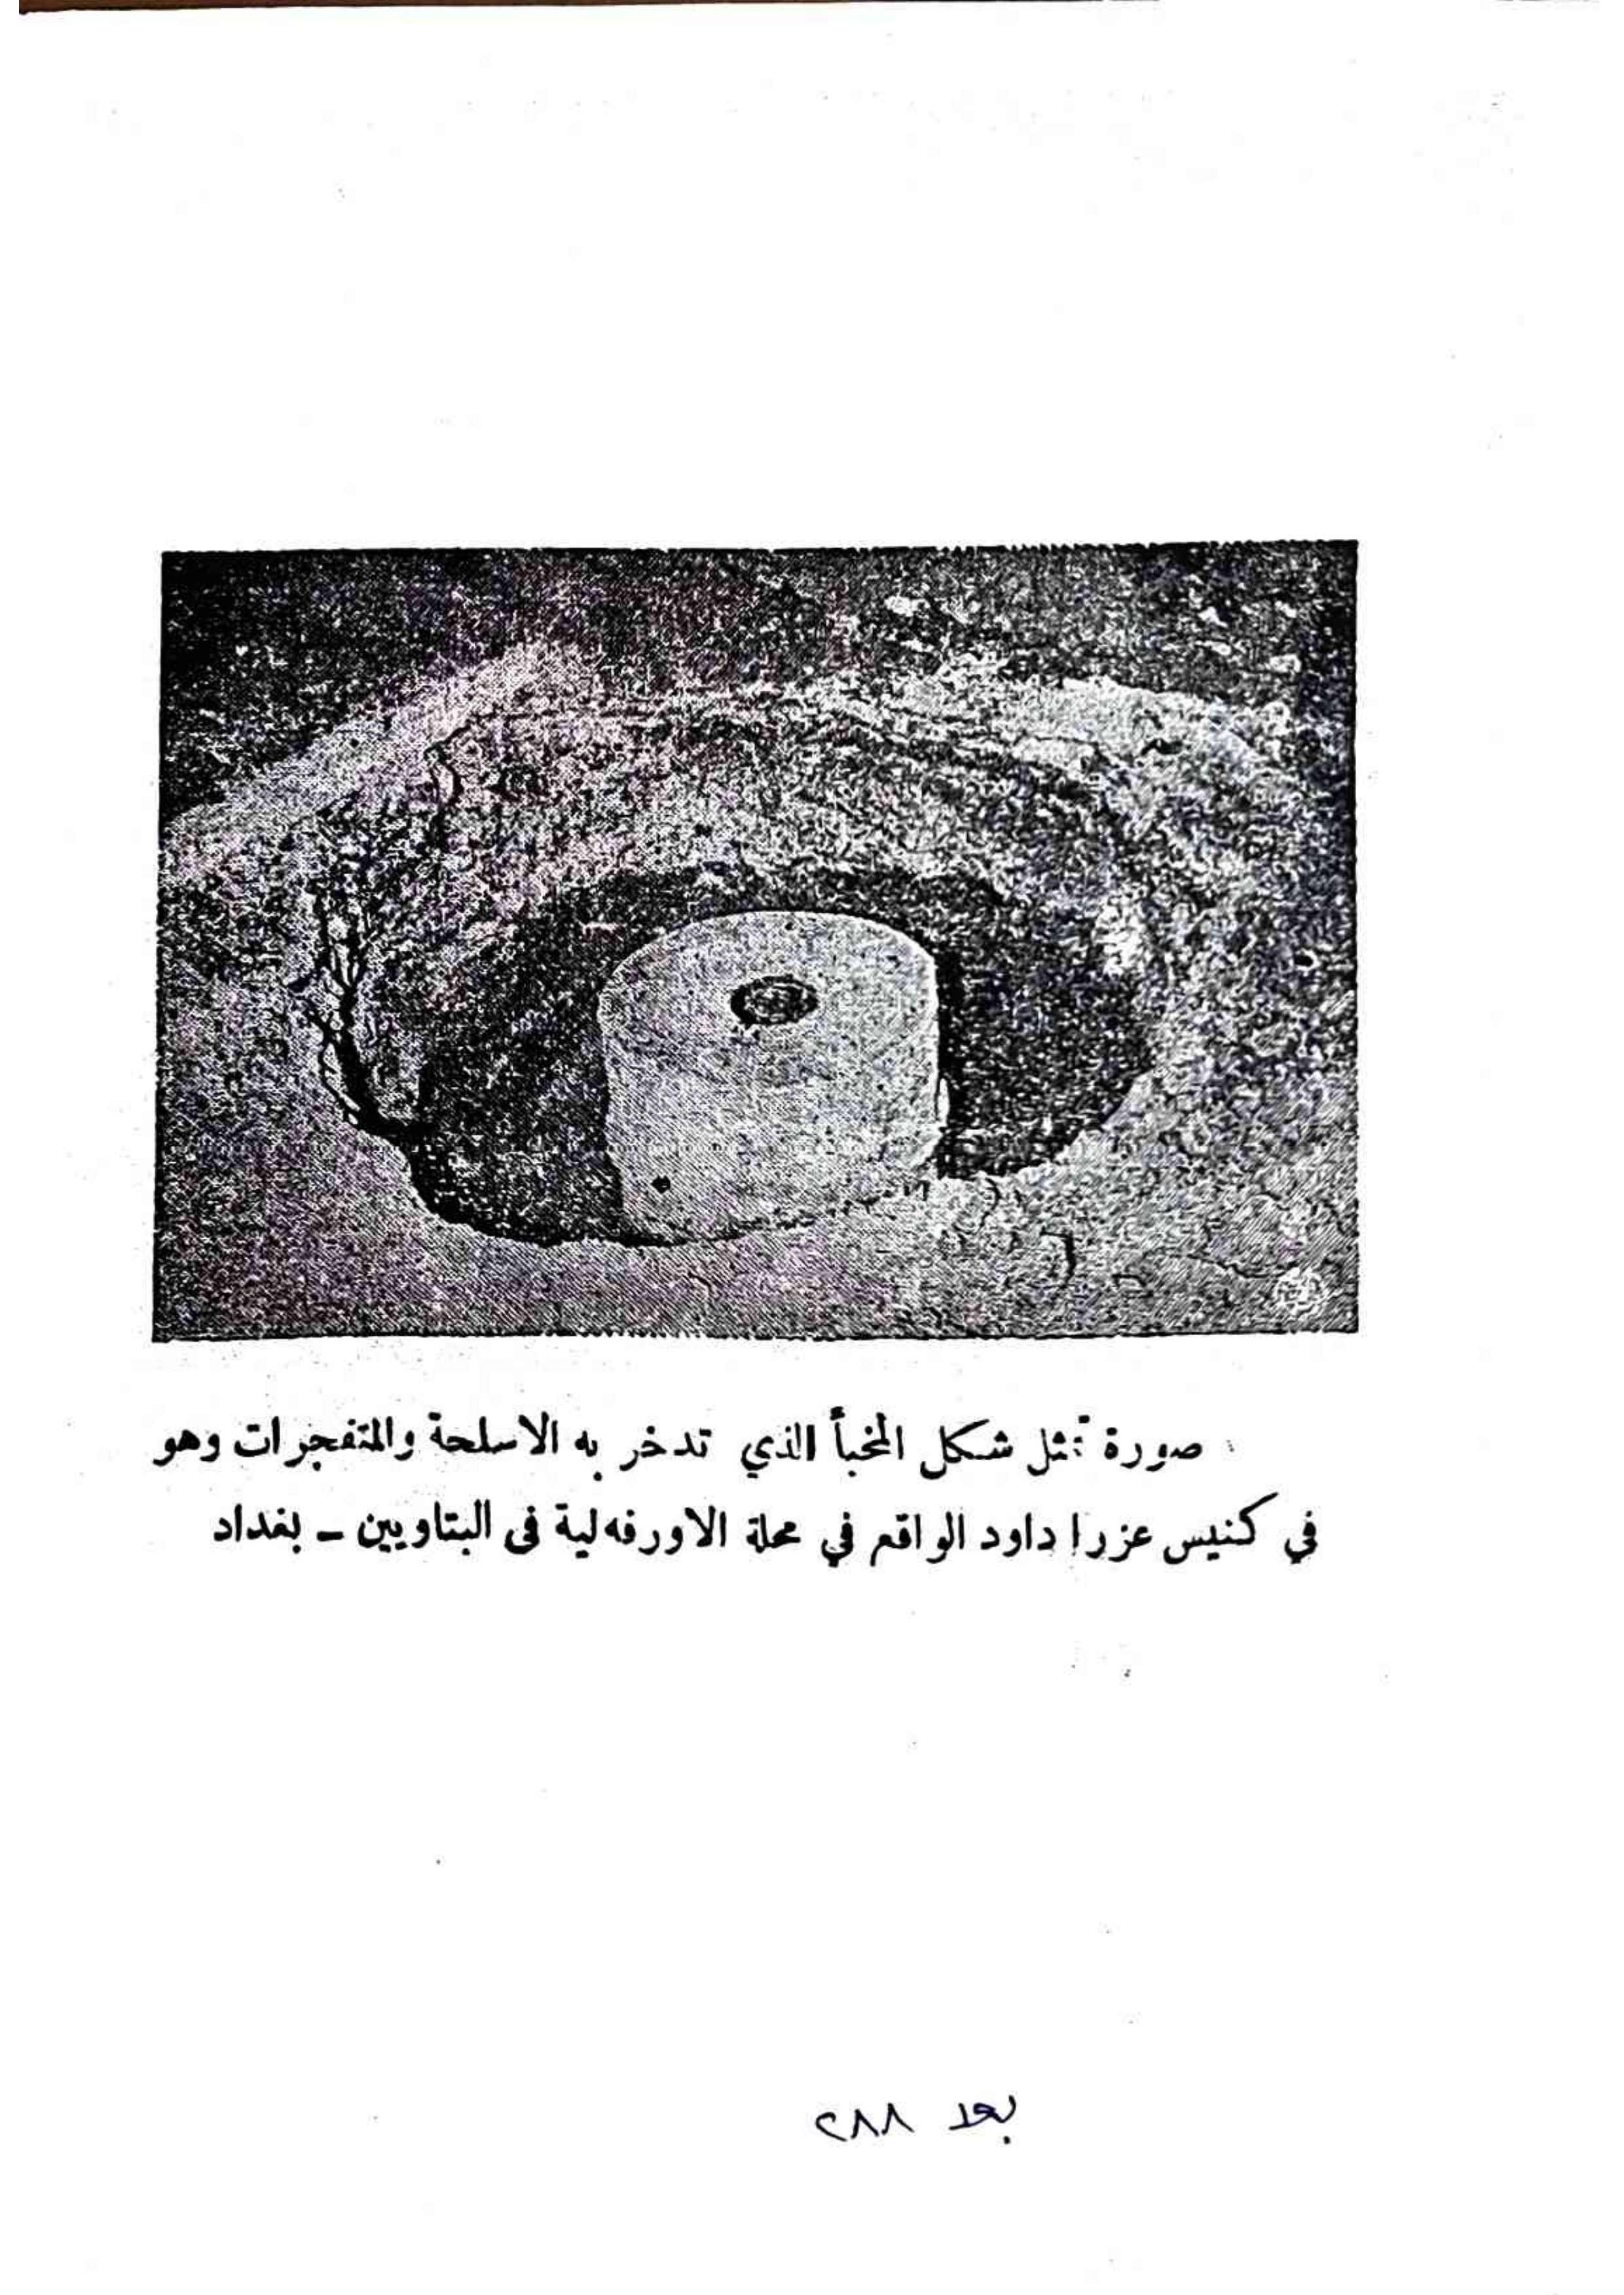 صورة تمثل شكل المخبأ الذي تدخر به الاسلحة والمتفجرات وهو
في كنيس عزرا داود الواقع في محلة الاورفه لية في البتاويين - بغداد
بعد ٢٨٨